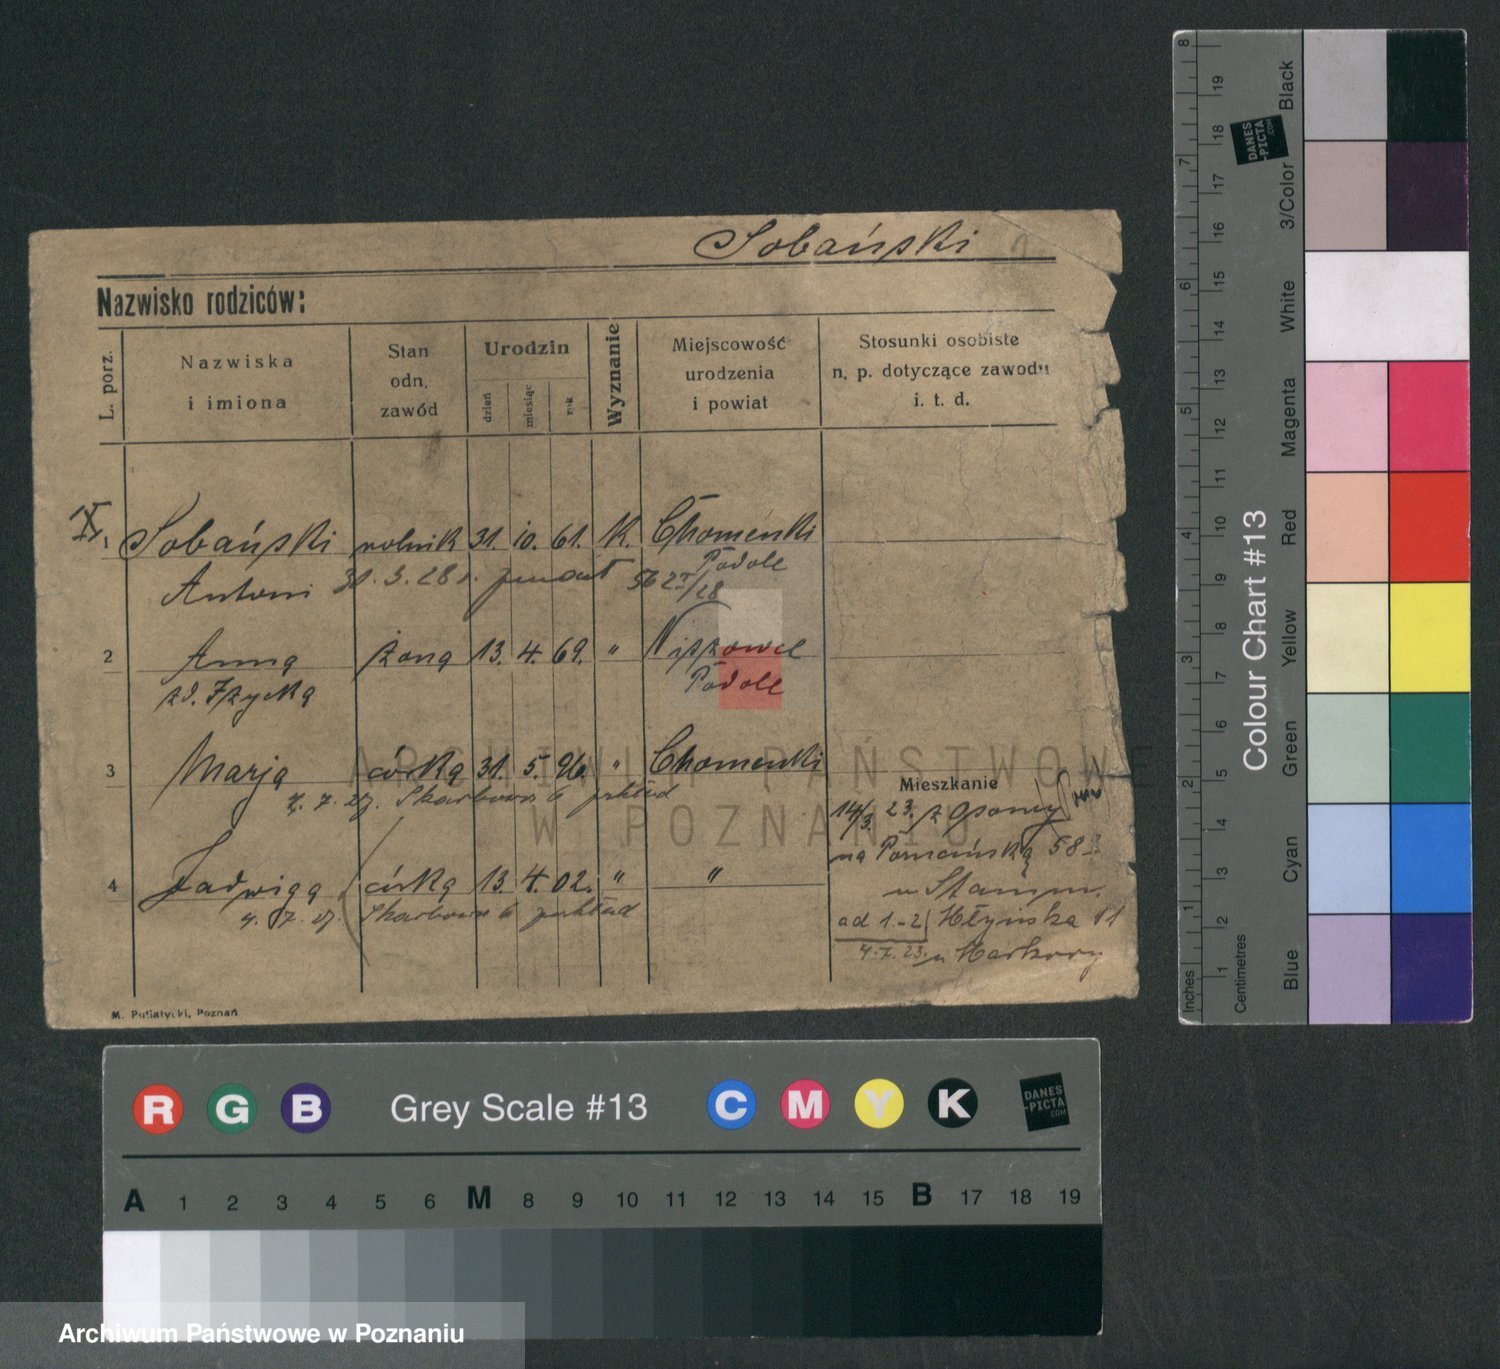 Sobański
Nazwisko rodziców:
L. porz.
Nazwiska
i imiona
Stan
odn.
zawód
Urodzin
dzień
miesiąc
rok
Wyznanie
Miejscowość
urodzenia
i powiat
Stosunki osobiste
n. p. dotyczące zawodu
i. t. d.
1 Sobański rolnik 31. 10. 61. K.
Antoni
Podole
2 Anna żona 13. 4. 69. "
Podole
3 Marja córka 31. 5. 96. "
4. 7. 27. Skarbowa 6
4 Jadwiga córka 13. 4. 02. " "
4. 7. 27. Skarbowa 6
Mieszkanie
14/3. 23. z
na Poznańską 58
ad 1-2
4.7.23. u
M. Putiatycki, Poznań
ARCHIWUM PAŃSTWOWE
W POZNANIU
Colour Chart #13
Black
3/Color
White
Magenta
Red
Yellow
Green
Cyan
Blue
Inches
1 2 3 4 5 6 7 8
Centimetres
1 2 3 4 5 6 7 8 9 10 11 12 13 14 15 16 17 18 19
DANES
-PICTA
.COM
R G B Grey Scale #13 C M Y K
DANES
-PICTA
.COM
A 1 2 3 4 5 6 M 8 9 10 11 12 13 14 15 B 17 18 19
Archiwum Państwowe w Poznaniu